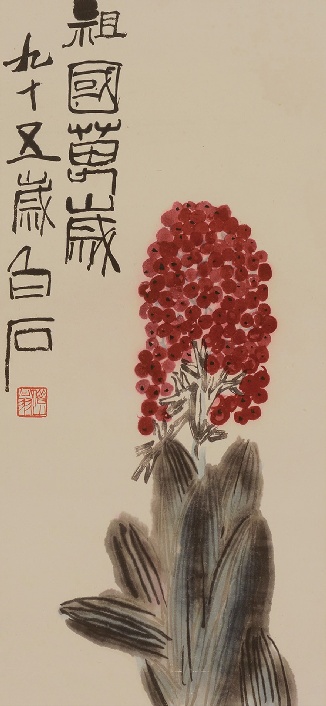 祖國萬歲
九十五歲白石